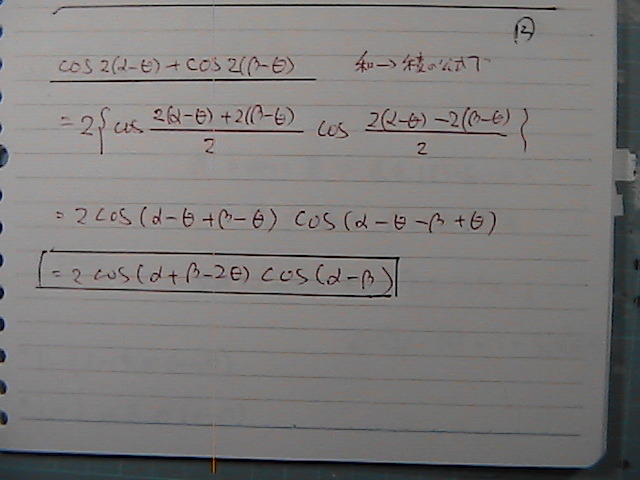 ⑫
cos2(α-θ)+cos2(β-θ) 和→積の公式で
=2{cos 2(α-θ)+2(β-θ)/2 cos 2(α-θ)-2(β-θ)/2}
=2cos(α-θ+β-θ) cos(α-θ-β+θ)
=2cos(α+β-2θ) cos(α-β)